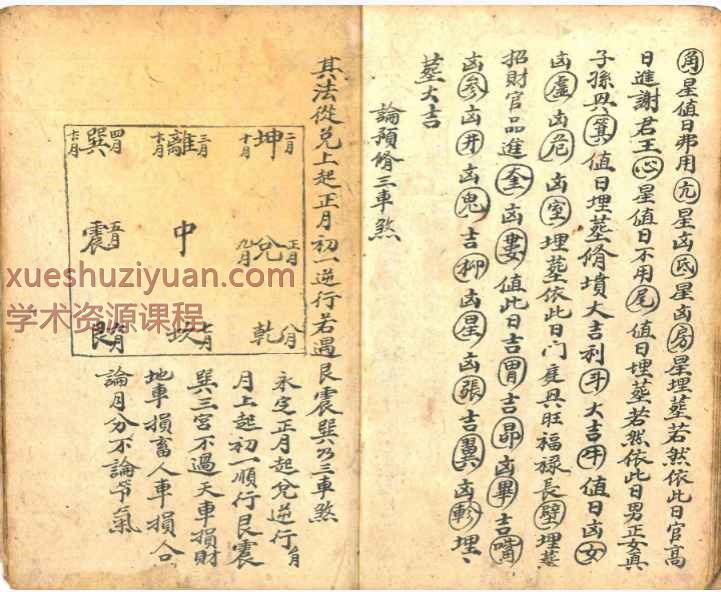 角星值日弗用亢星凶氐星凶房星埋塟若然依此日官高
日進謝君王心星值日不用尾值日埋塟若然依此日男正女真
子孫㒷箕值日埋塟脩墳大吉利斗大吉牛值日凶女
凶虛凶危凶室埋塟依此日门庭㒷旺福祿長壁埋塟
招財官品進奎凶婁值此日吉胃吉昴凶畢吉嘴
凶參凶井凶鬼吉柳凶星凶張吉翼凶軫埋
塟大吉
論預脩三車煞
其法從兌上起正月初一逆行若遇艮震巽乃三車煞
坤 二月 十月
離 三月 十一月
巽 四月 十二月
兌 正月 九月
中
震 五月
乾 八月
坎 七月
艮 六月
永定正月起兌逆行
月上起初一順行艮震
巽三宮不過天車損財
地車損畜人車損人
論月分不論节氣
xueshuziyuan.com
学术资源课程